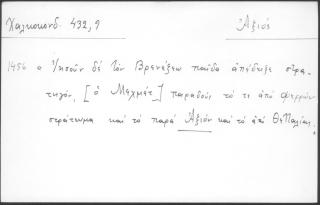 Χαλκοκονδ. 432,9 Ἀξιός
1456 ὁ Ἰησοῦν δὲ τὸν Βρενέζεω παῖδα ἀπέδειξε στρα-
τηγόν, [ὁ Μεχμέτ] παραδοὺς τό τε ἀπὸ Φερρῶν
στράτευμα καὶ τὸ παρὰ Ἀξιὸν καὶ τὸ ἀπὸ Θετταλίας.